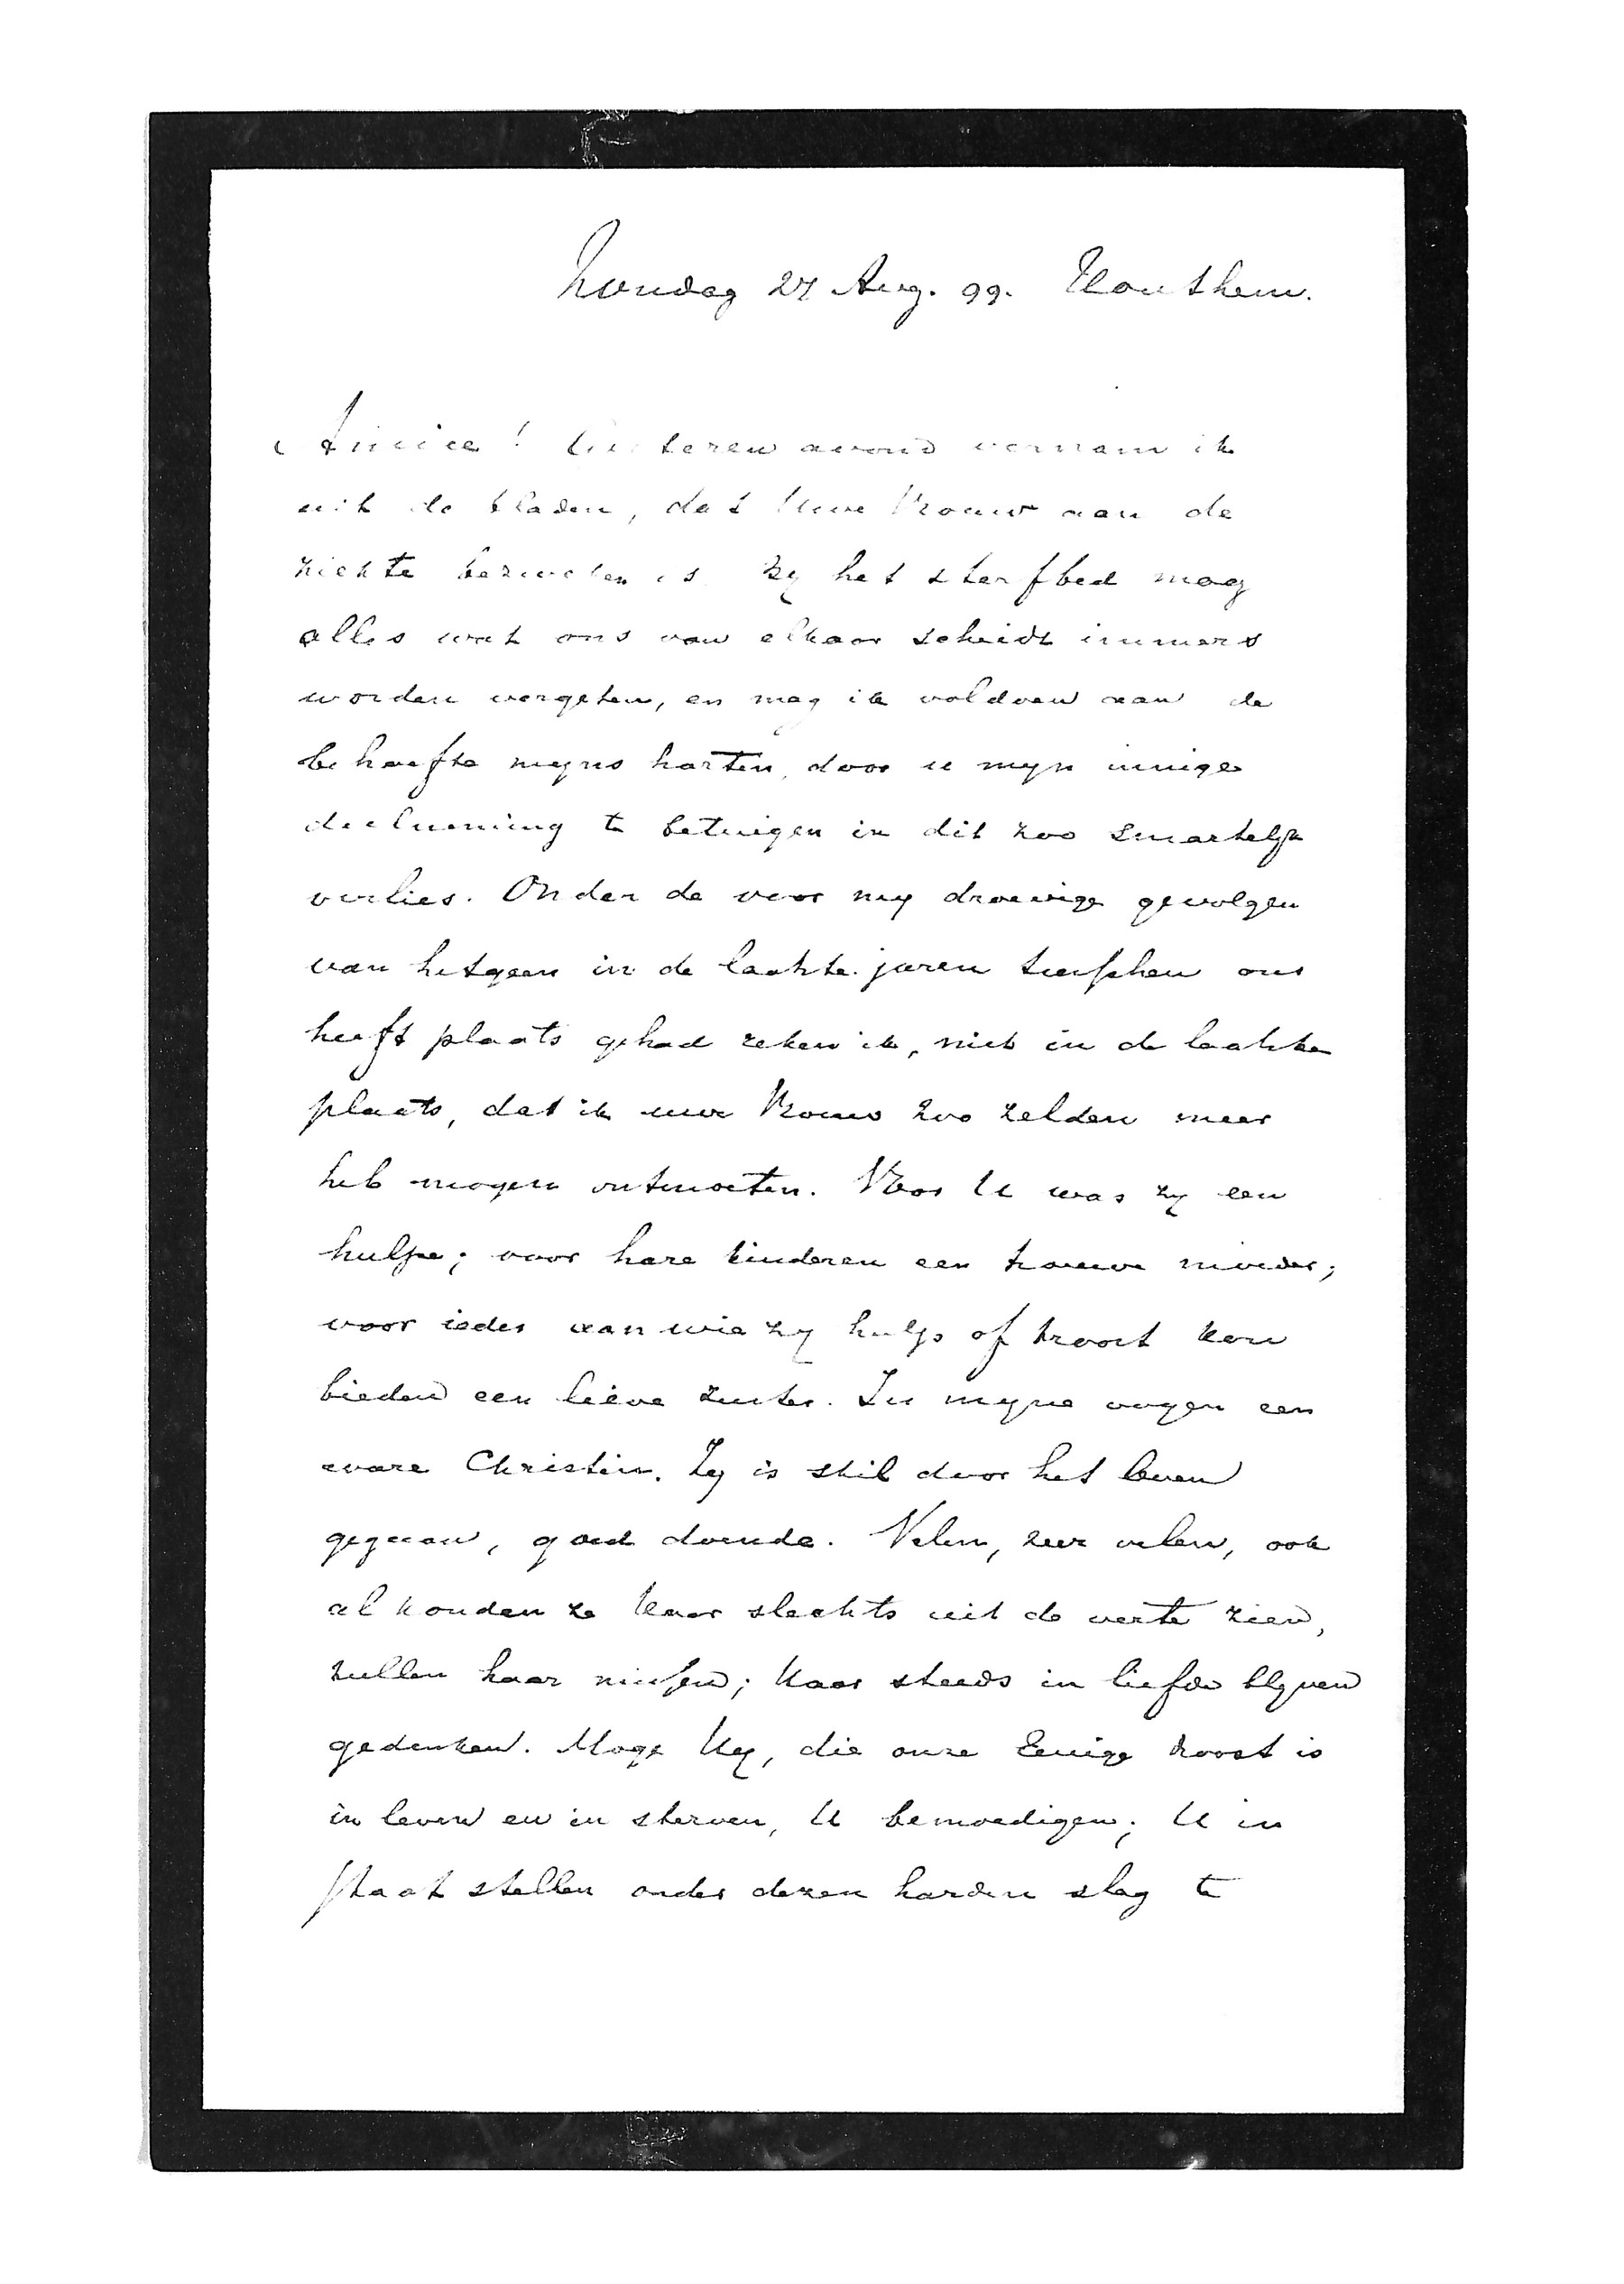 Zondag 27 Aug. 99. Houthem.
Amice! Gisteren avond vernam ik
uit de bladen, dat Uwe Vrouw aan de
ziekte bezweken is. By het sterfbed mag
alles wat ons van elkaar scheidt immers
worden vergeten, en mag ik voldoen aan de
behoefte mijns harten, door u mijn innige
deelneming te betuigen in dit zoo smartelijk
verlies. Onder de voor mij droevige gevolgen
van hetgeen in de laatste jaren tusschen ons
heeft plaats gehad reken ik, niet in de laatste
plaats, dat ik uwe Vrouw zoo zelden meer
heb mogen ontmoeten. Voor U was zij een
hulpe; voor hare kinderen een trouwe moeder;
voor ieder aan wie zij hulp of troost kon
bieden een lieve zuster. In mijne oogen een
ware Christin. Zij is stil door het leven
gegaan, goed doende. Velen, zeer velen, ook
al konden ze Haar slechts uit de verte zien,
zullen haar missen; Haar steeds in liefde blijven
gedenken. Moge Hij, die onze Eenige troost is
in leven en in sterven, U bemoedigen; U in
staat stellen onder dezen harden slag te